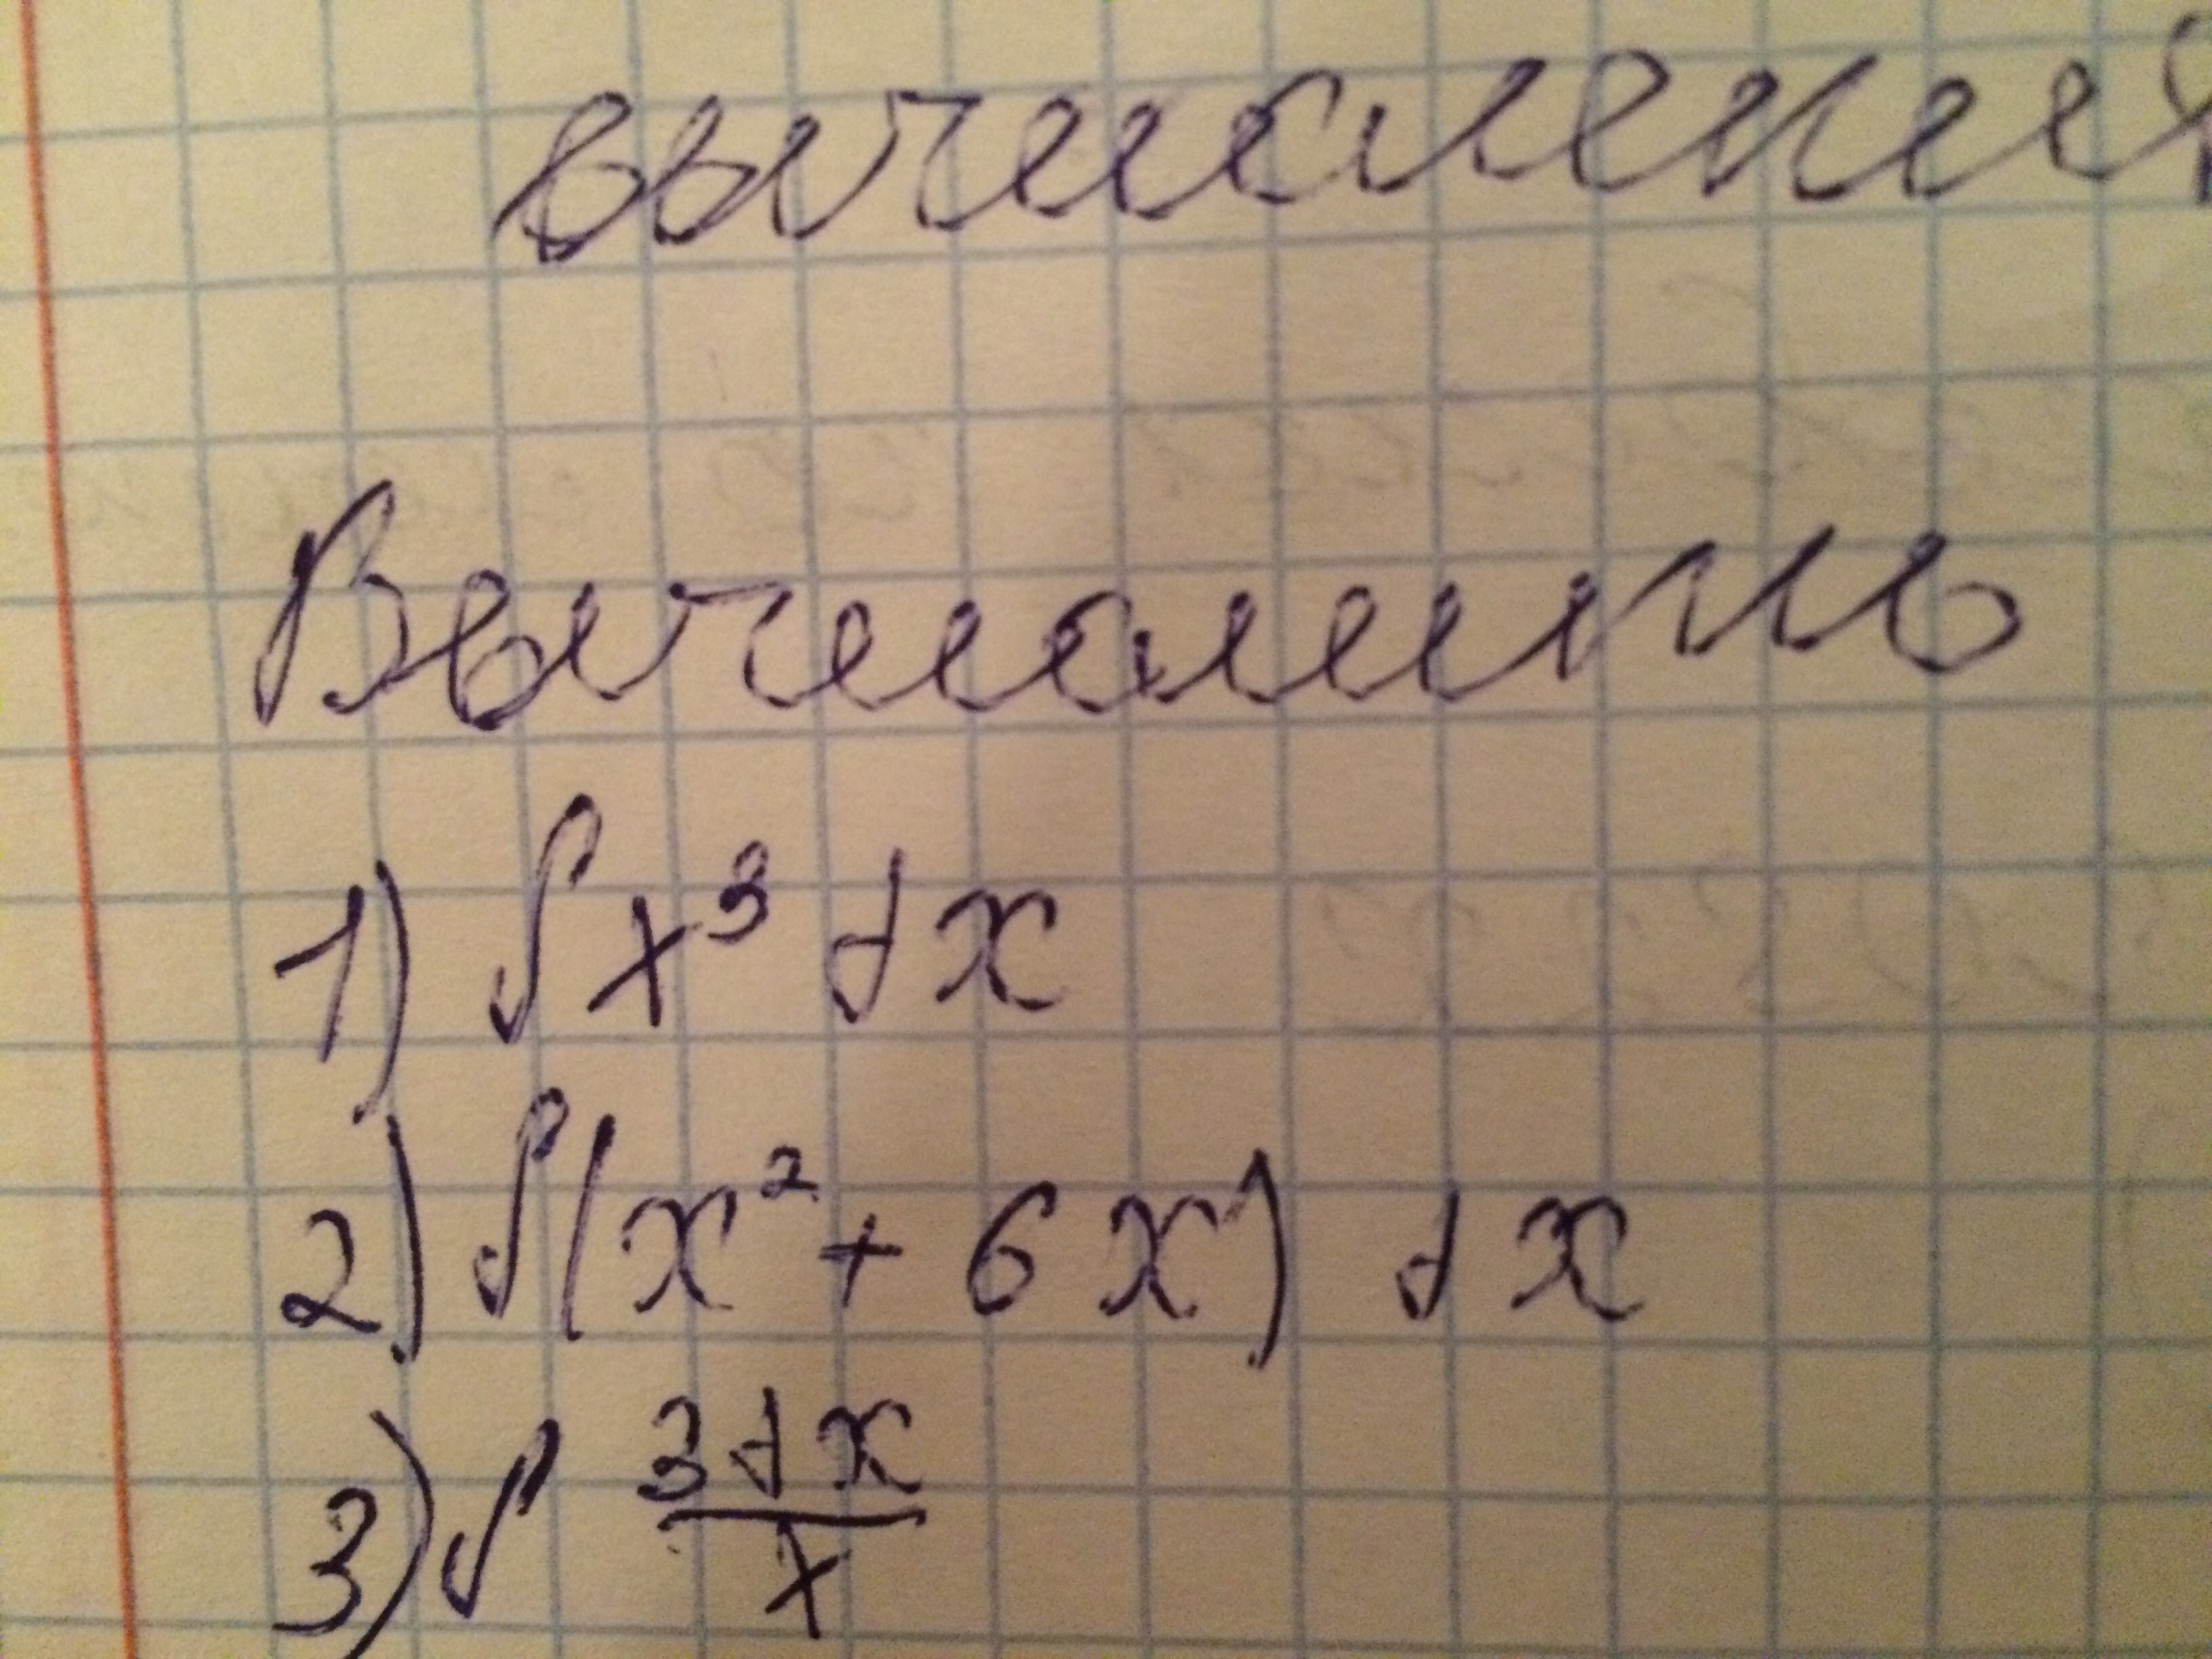 вычисления
Вычислить
1) ∫x³ dx
2) ∫(x² + 6x) dx
3) ∫ 3dx/x